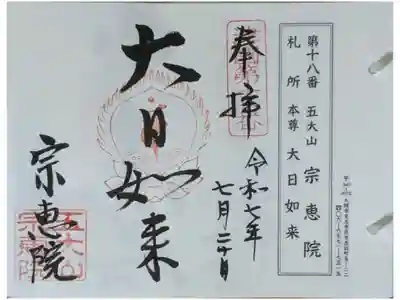 第十八番 五大山 宗恵院
札所本尊 大日如来
奉拝
令和七年
七月二十日
大日如来
宗恵院
五大山
宗恵院